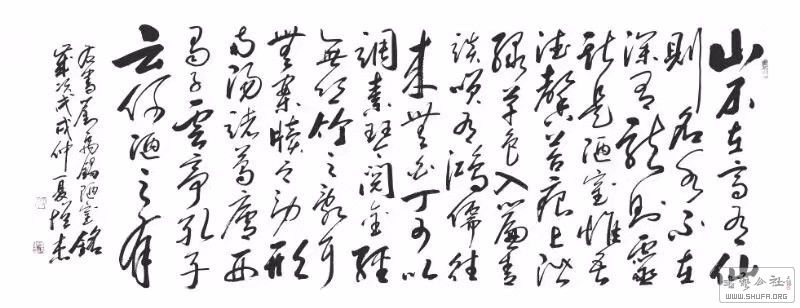 山不在高有仙
则名水不在
深有龙则灵
斯是陋室惟吾
德馨苔痕上阶
绿草色入帘青
谈笑有鸿儒往
来无白丁可以
调素琴阅金经
无丝竹之乱耳
无案牍之劳形
南阳诸葛庐西
蜀子云亭孔子
云何陋之有
右书刘禹锡陋室铭
岁次戊戌仲夏
书法公社
WWW.SHUFA.ORG